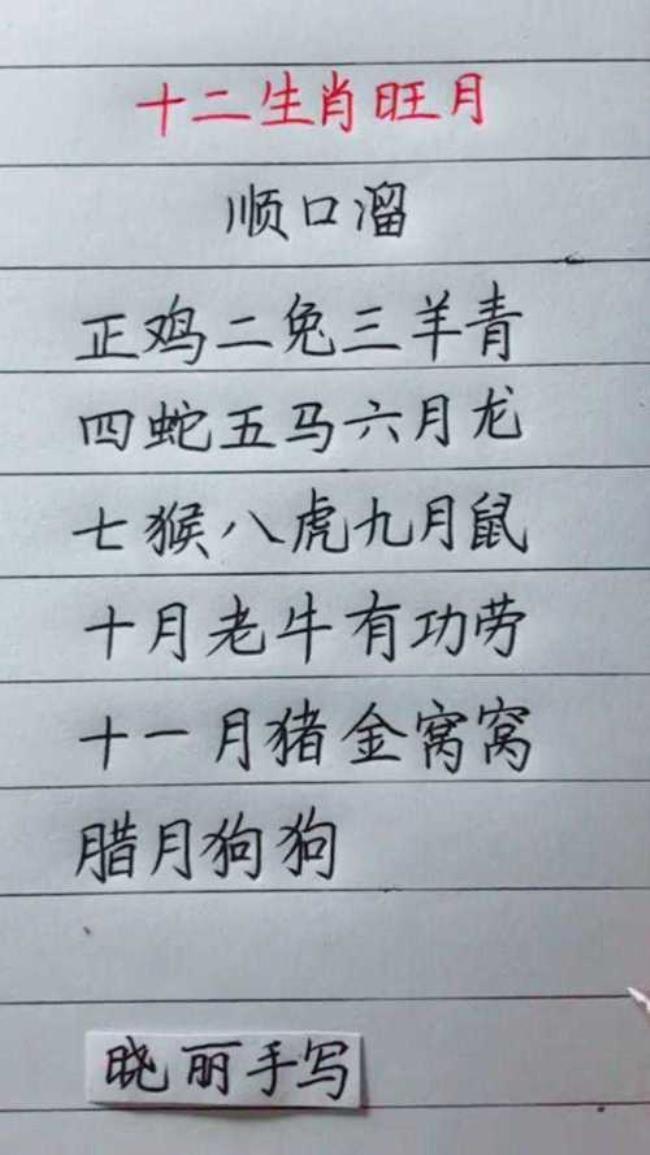 十二生肖旺月
顺口溜
正鸡二兔三羊青
四蛇五马六月龙
七猴八虎九月鼠
十月老牛有功劳
十一月猪金窝窝
腊月狗狗
晓丽手写